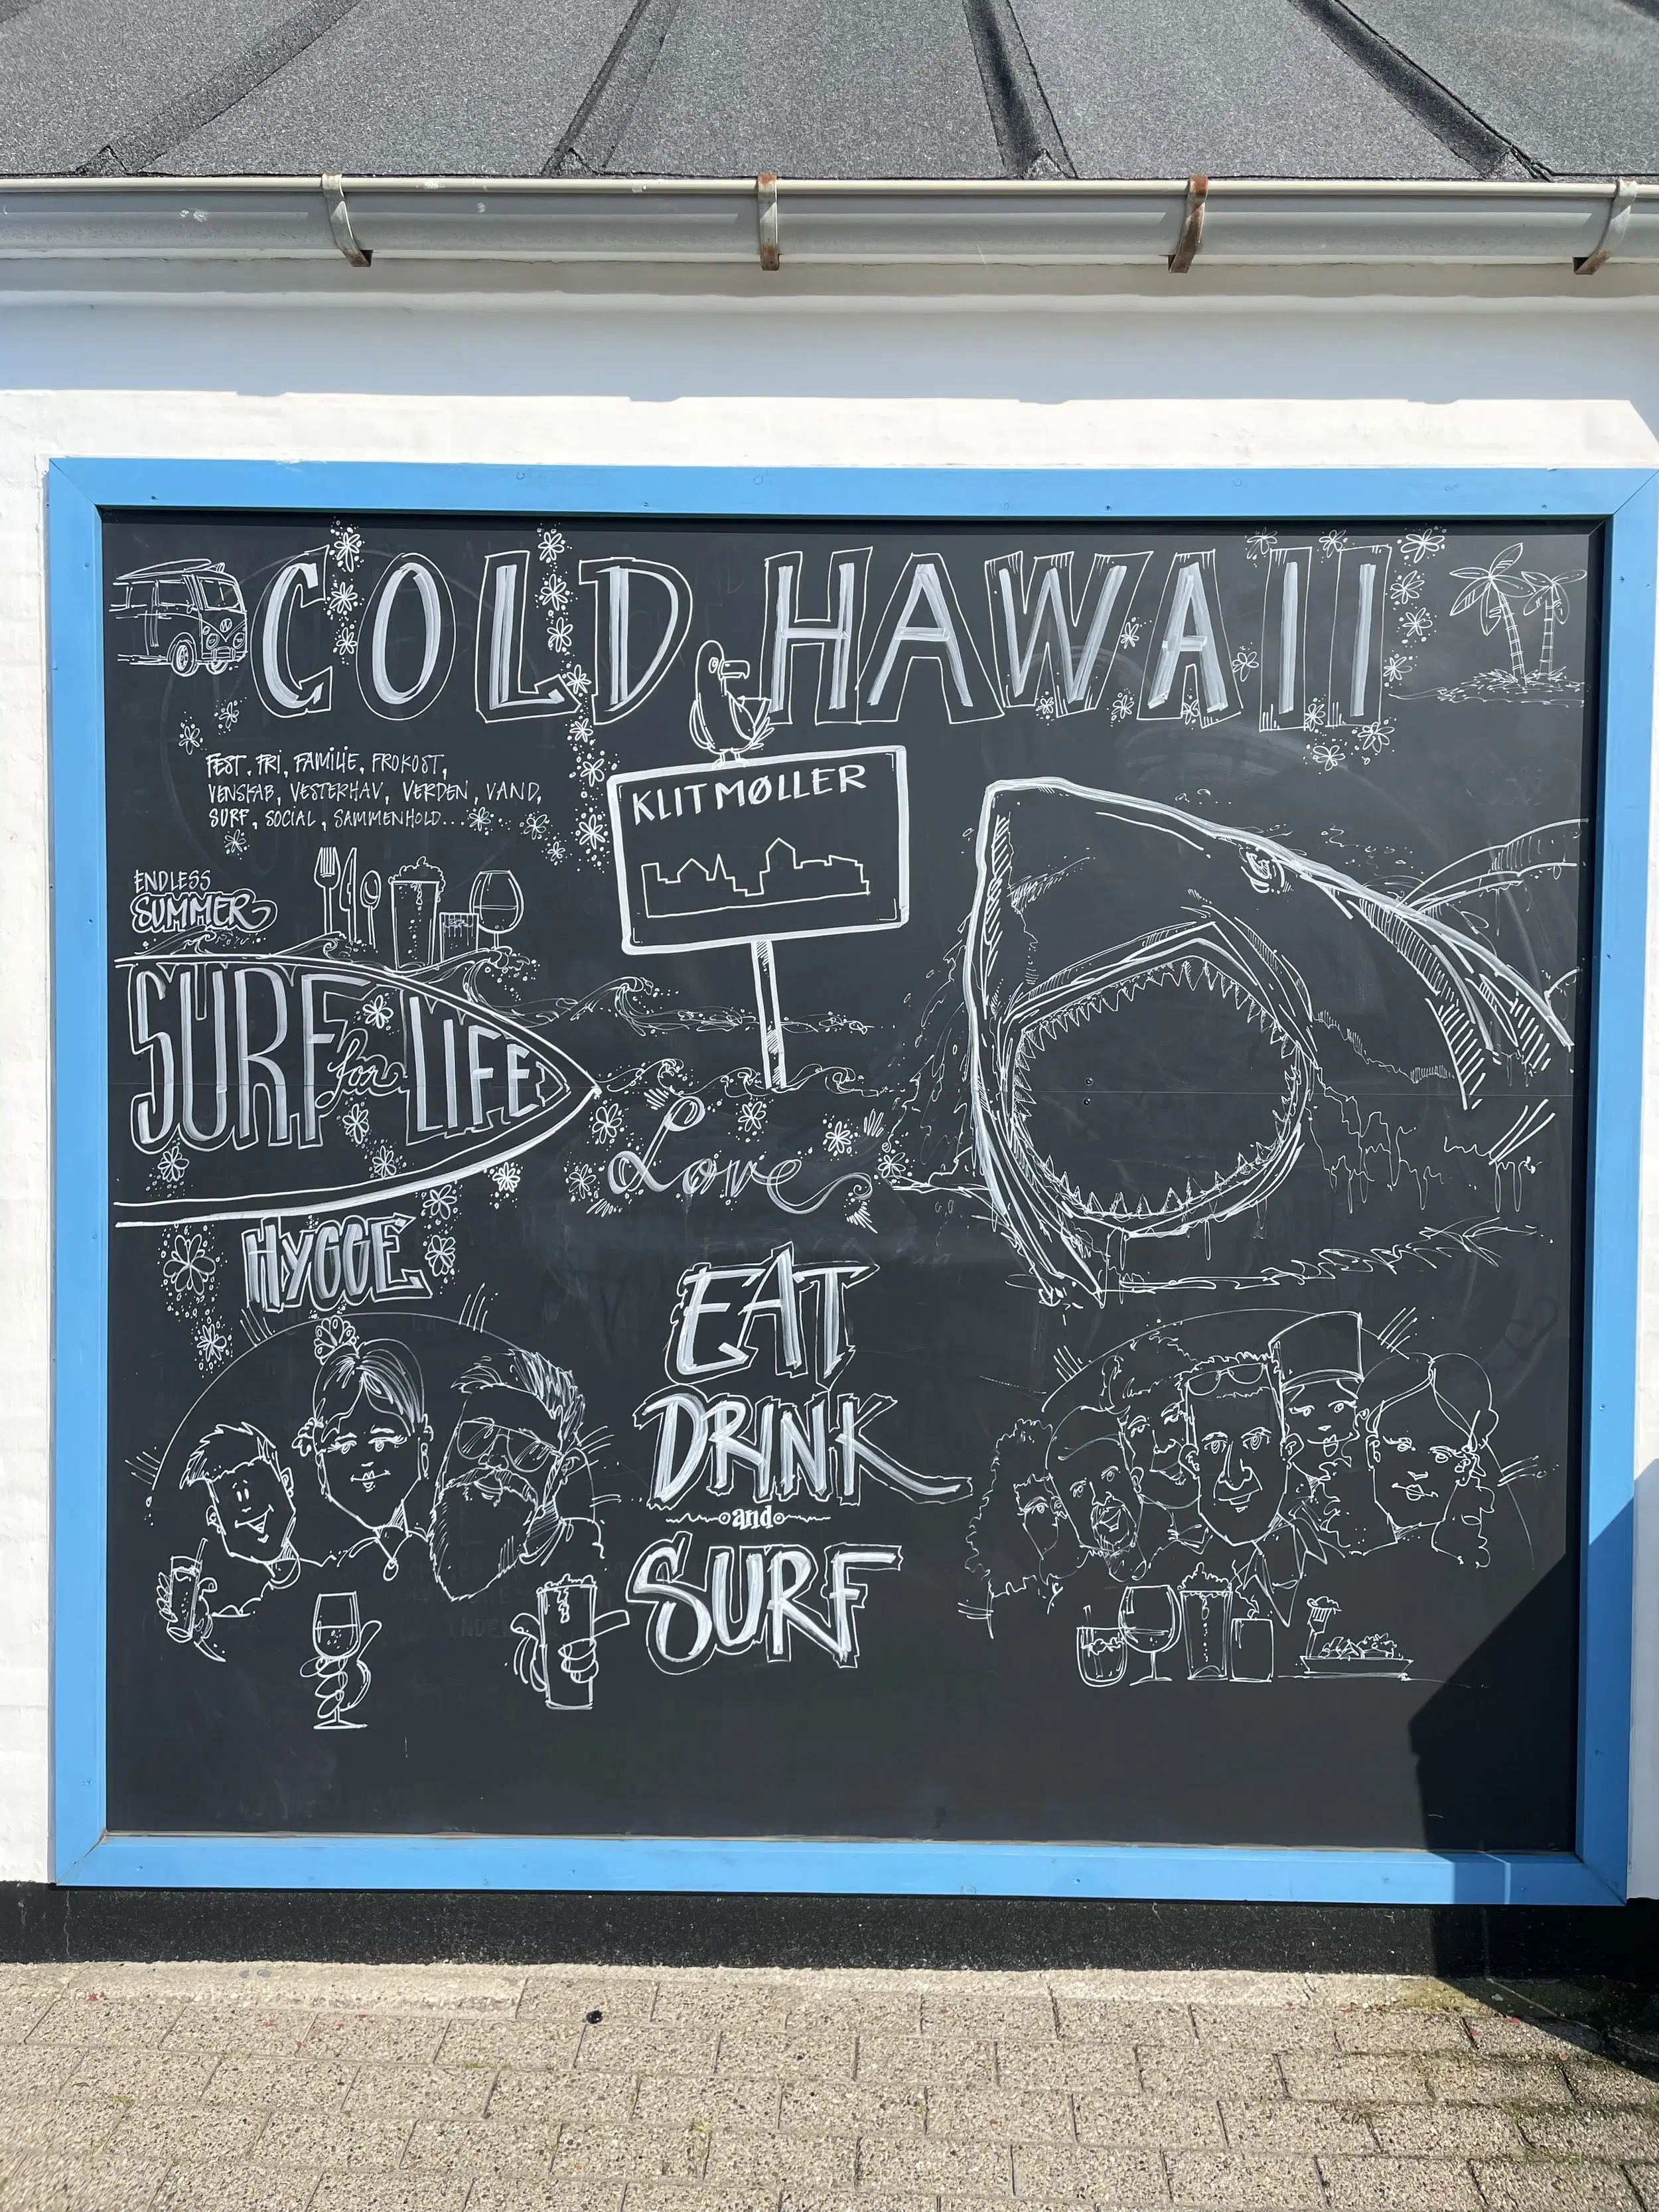 COLD HAWAII
FEST, FRI, FAMILIE, FROKOST,
VENSKAB, VESTERHAV, VERDEN, VAND,
SURF, SOCIAL, SAMMENHOLD...
KLITMØLLER
ENDLESS
SUMMER
SURF for LIFE
Love
HYGGE
EAT
DRINK
and
SURF